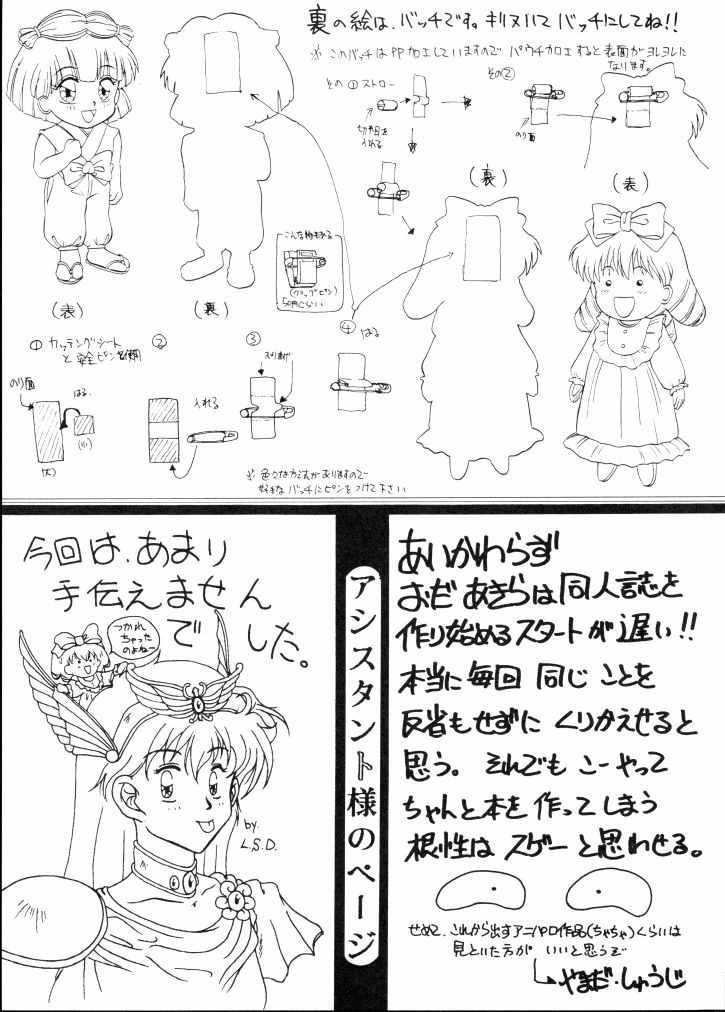 裏の絵は、バッチです。キリヌいて バッチにしてね!!
※ このバッチはPP加工していますので パウチカロエすると表面がヨレヨレに
なります。
その①ストロー
その②
切れ目を
入れる
のり面
(裏)
(表)
こんな物もある
(クリップピン)
50円ぐらい
(表)
(裏)
① カッティングシート
と 安全ピンを用意
②
③
④ はる
のり面
はる。
(大)
(小)
入れる
※ 色々な方法がありますので
好きな バッチにピンをつけて下さい
今回は、あまり
手伝えません
でした。
つかれ
ちゃった
のよねー
by.
L.S.D.
アシスタント様のページ
あいかわらず
おだ あきらは同人誌を
作り始めるスタートが遅い!!
本当に毎回 同じ ことを
反省もせずに くりかえせると
思う。 それでも こーやって
ちゃんと本を 作ってしまう
根性は スゲーと思わせる。
せめて、これから出すアニパロ作品(ちゃちゃ)くらいは
見といた方が いいと思うぞ
やまだ・しゅうじ